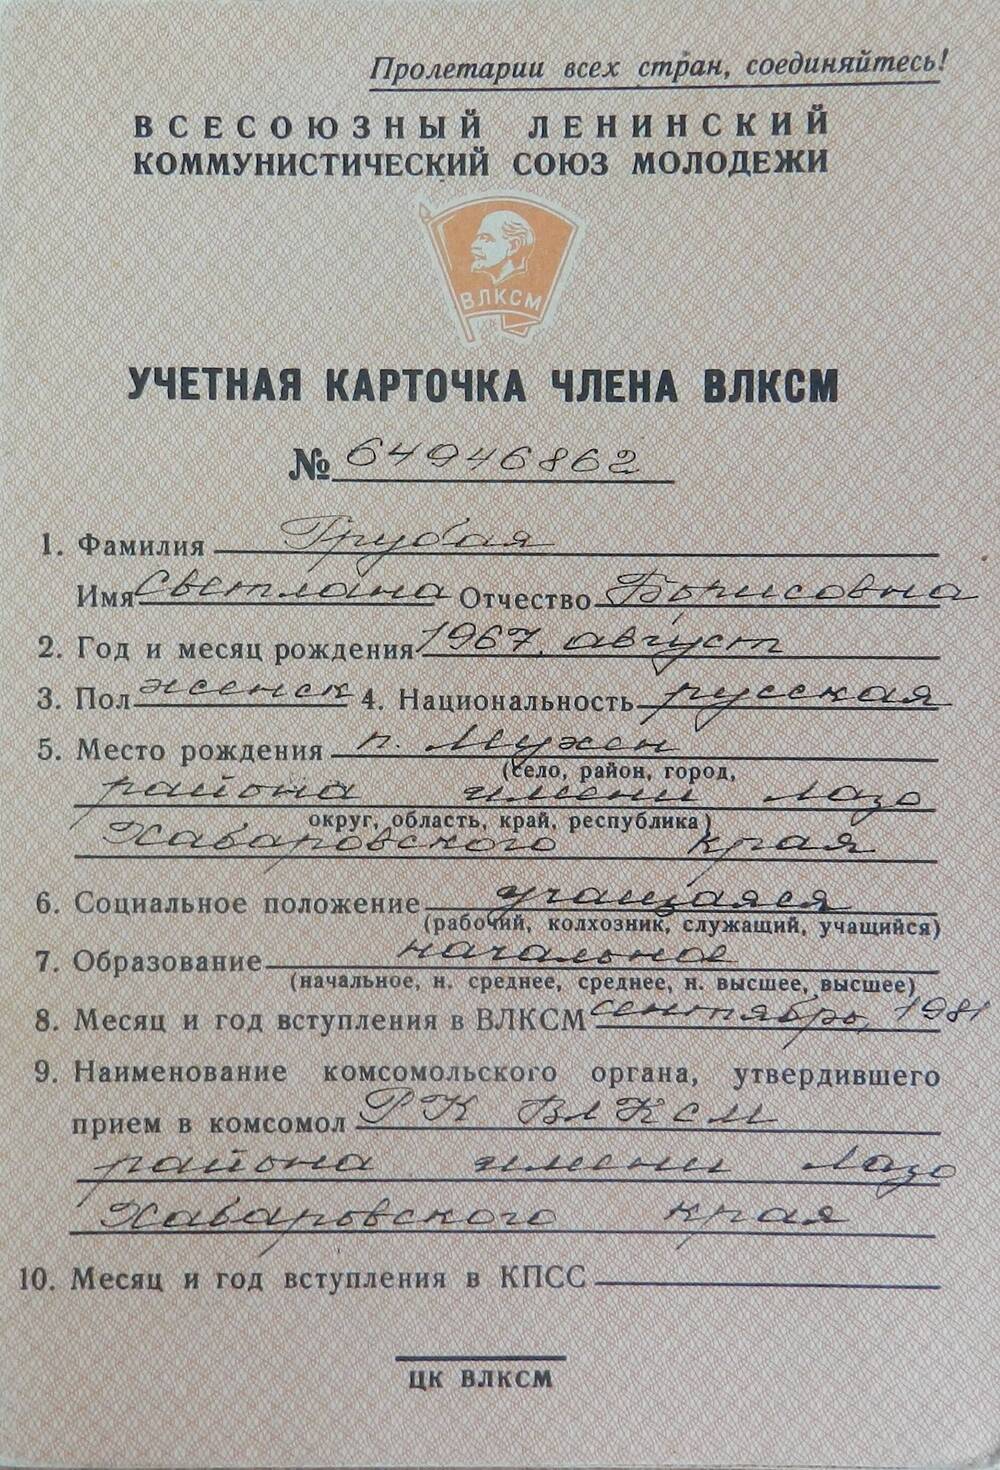 Пролетарии всех стран, соединяйтесь!
ВСЕСОЮЗНЫЙ ЛЕНИНСКИЙ
КОММУНИСТИЧЕСКИЙ СОЮЗ МОЛОДЕЖИ
ВЛКСМ
УЧЕТНАЯ КАРТОЧКА ЧЛЕНА ВЛКСМ
№ 64946862
1. Фамилия Грубая
Имя Светлана Отчество Борисовна
2. Год и месяц рождения 1967, август
3. Пол женск 4. Национальность русская
5. Место рождения п. Мухен
(село, район, город,
района имени Лазо
округ, область, край, республика)
Хабаровского края
6. Социальное положение учащаяся
(рабочий, колхозник, служащий, учащийся)
7. Образование начальное
(начальное, н. среднее, среднее, н. высшее, высшее)
8. Месяц и год вступления в ВЛКСМ сентябрь, 1981
9. Наименование комсомольского органа, утвердившего
прием в комсомол РК ВЛКСМ
района имени Лазо
Хабаровского края
10. Месяц и год вступления в КПСС
ЦК ВЛКСМ